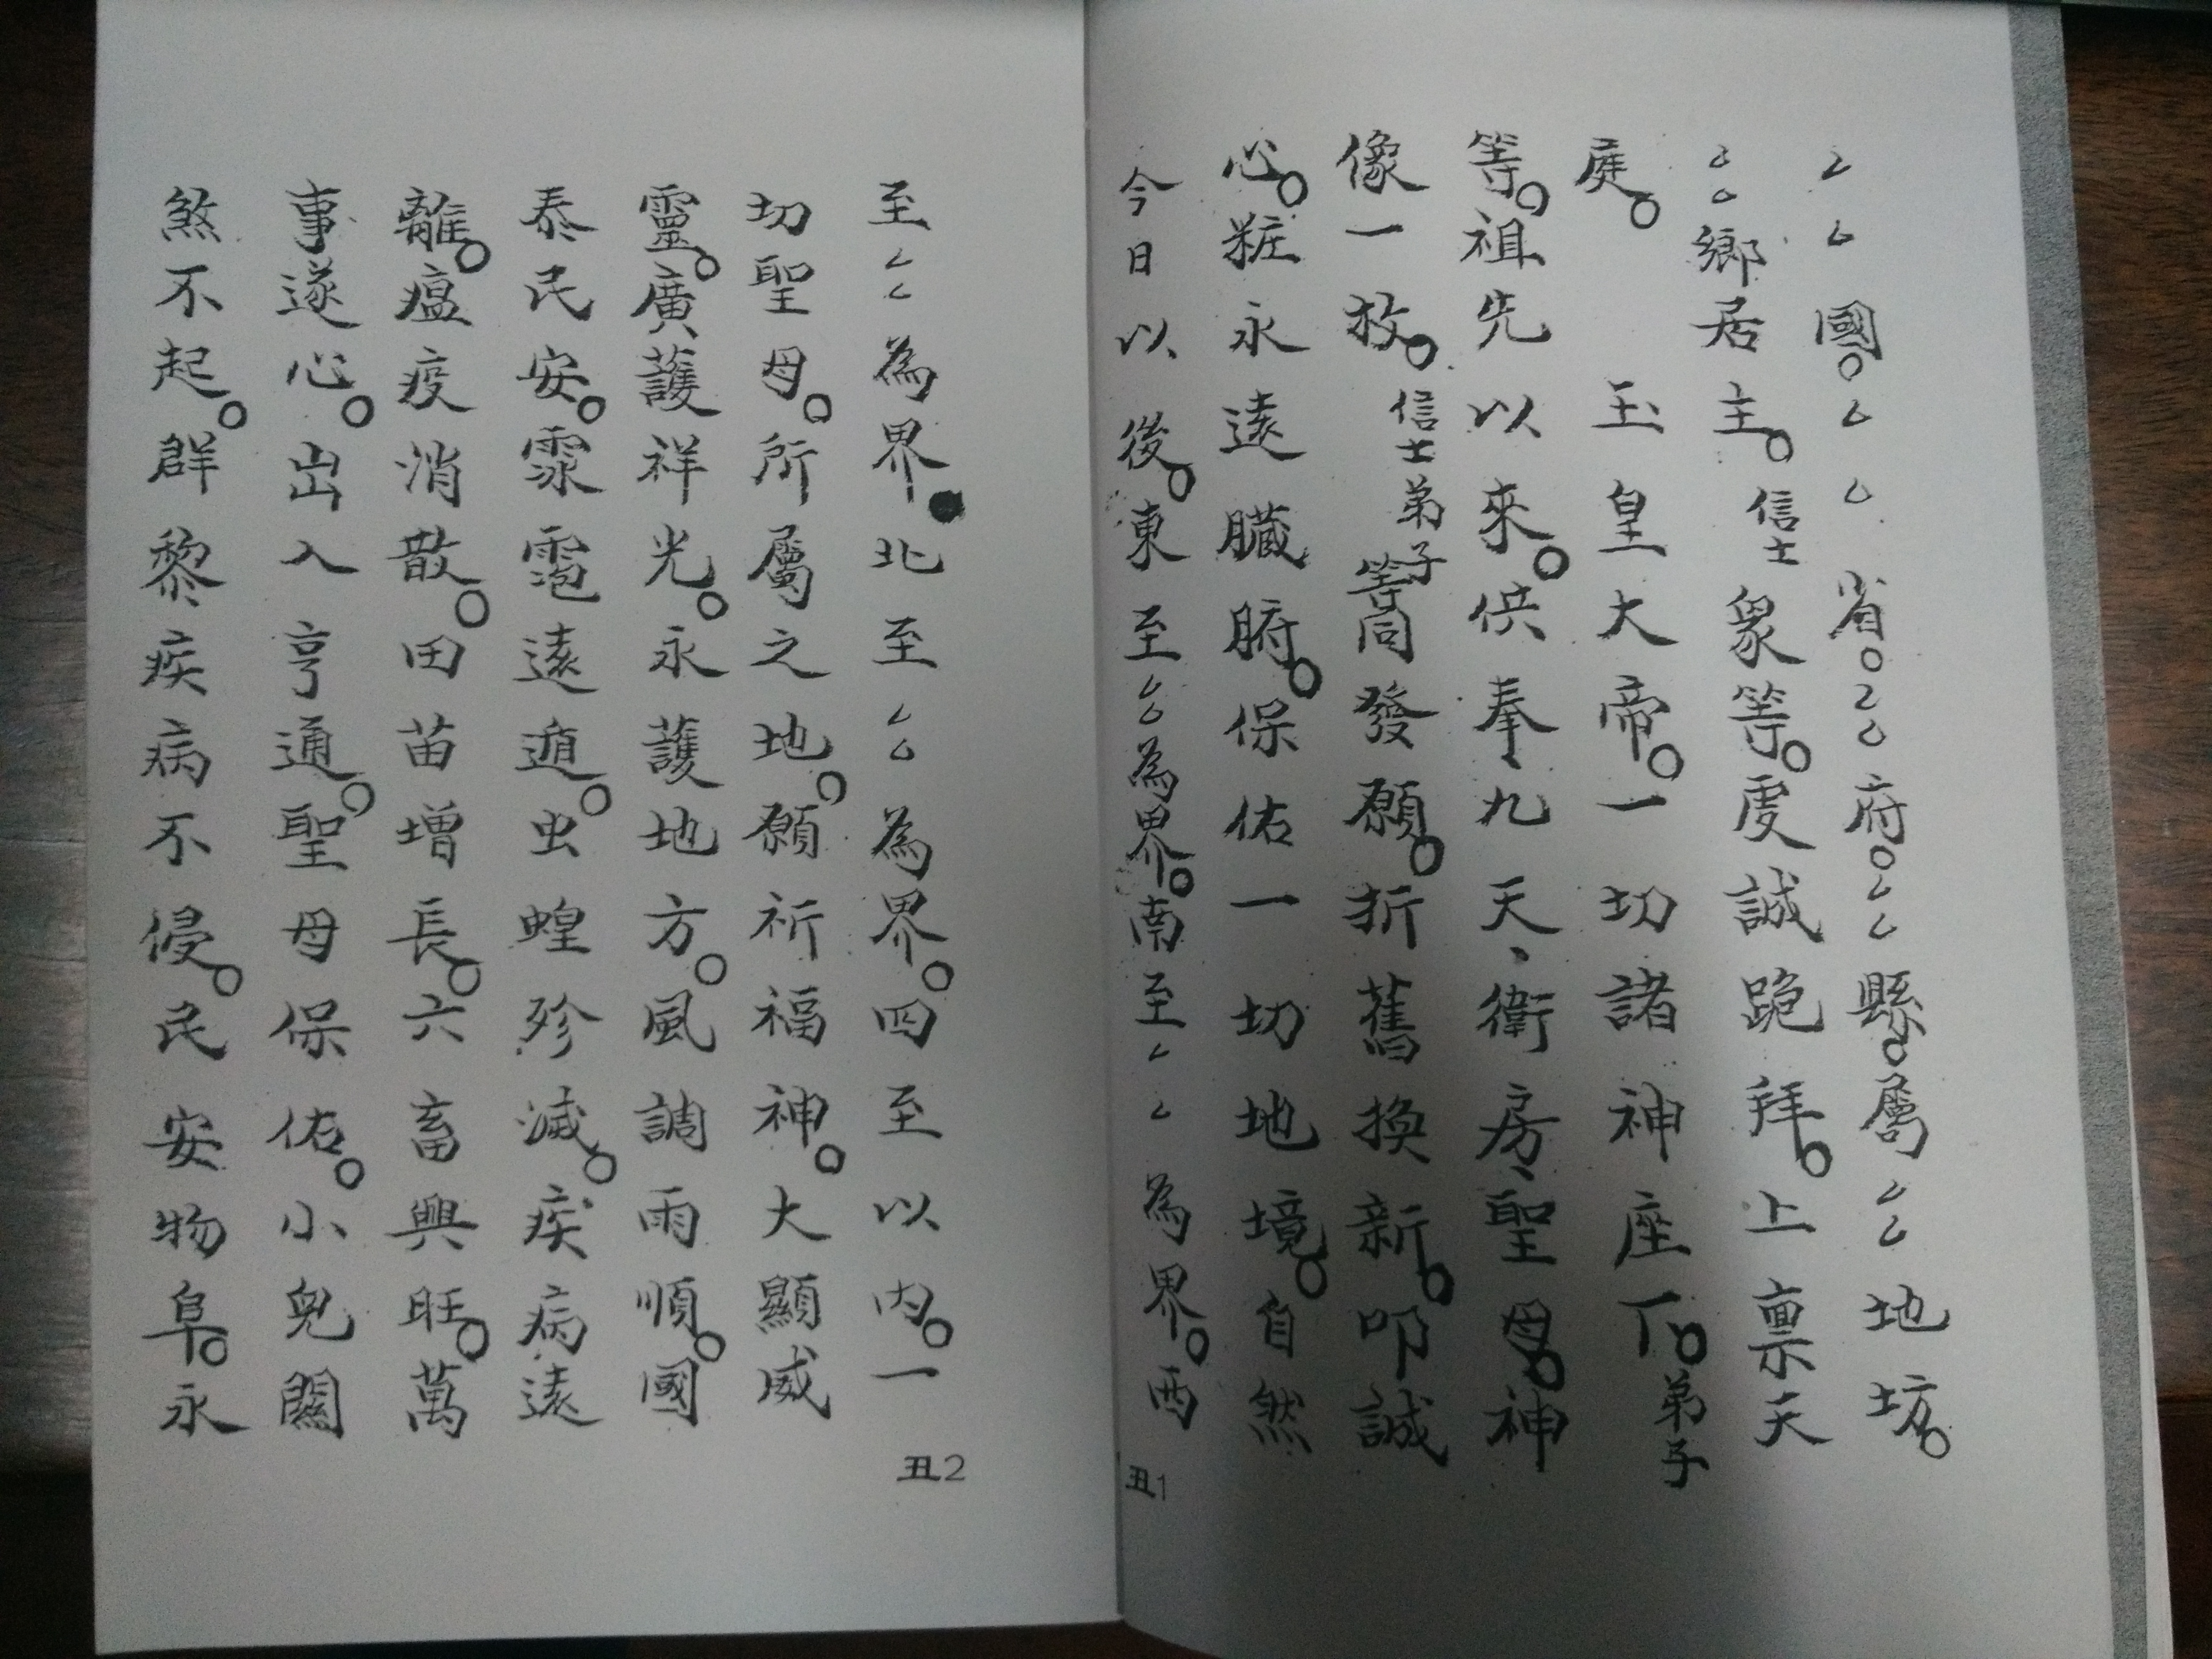 厶厶國。厶厶省。厶厶府。厶厶縣。屬厶厶地坊。
厶厶鄉居主。信士眾等。虔誠跪拜。上稟天
庭。玉皇大帝。一切諸神座下。弟子
等。祖先以來。供奉、九天、衛房、聖母。神
像一枚。信士弟子等同發願。折舊換新。叩誠
心。粧永遠臟腑。保佑一切地境。自然
今日以後。東至厶厶為界。南至厶厶為界。西
丑1
至厶厶為界。北至厶厶為界。四至以內。一
切聖母。所屬之地。願祈福神。大顯威
靈。廣護祥光。永護地方。風調雨順。國
泰民安。雰雹遠遁。虫蝗殄滅。疾病遠
離。瘟疫消散。田苗增長。六畜興旺。萬
事遂心。出入亨通。聖母保佑。小兒關
煞不起。群黎疾病不侵。民安物阜。永
丑2